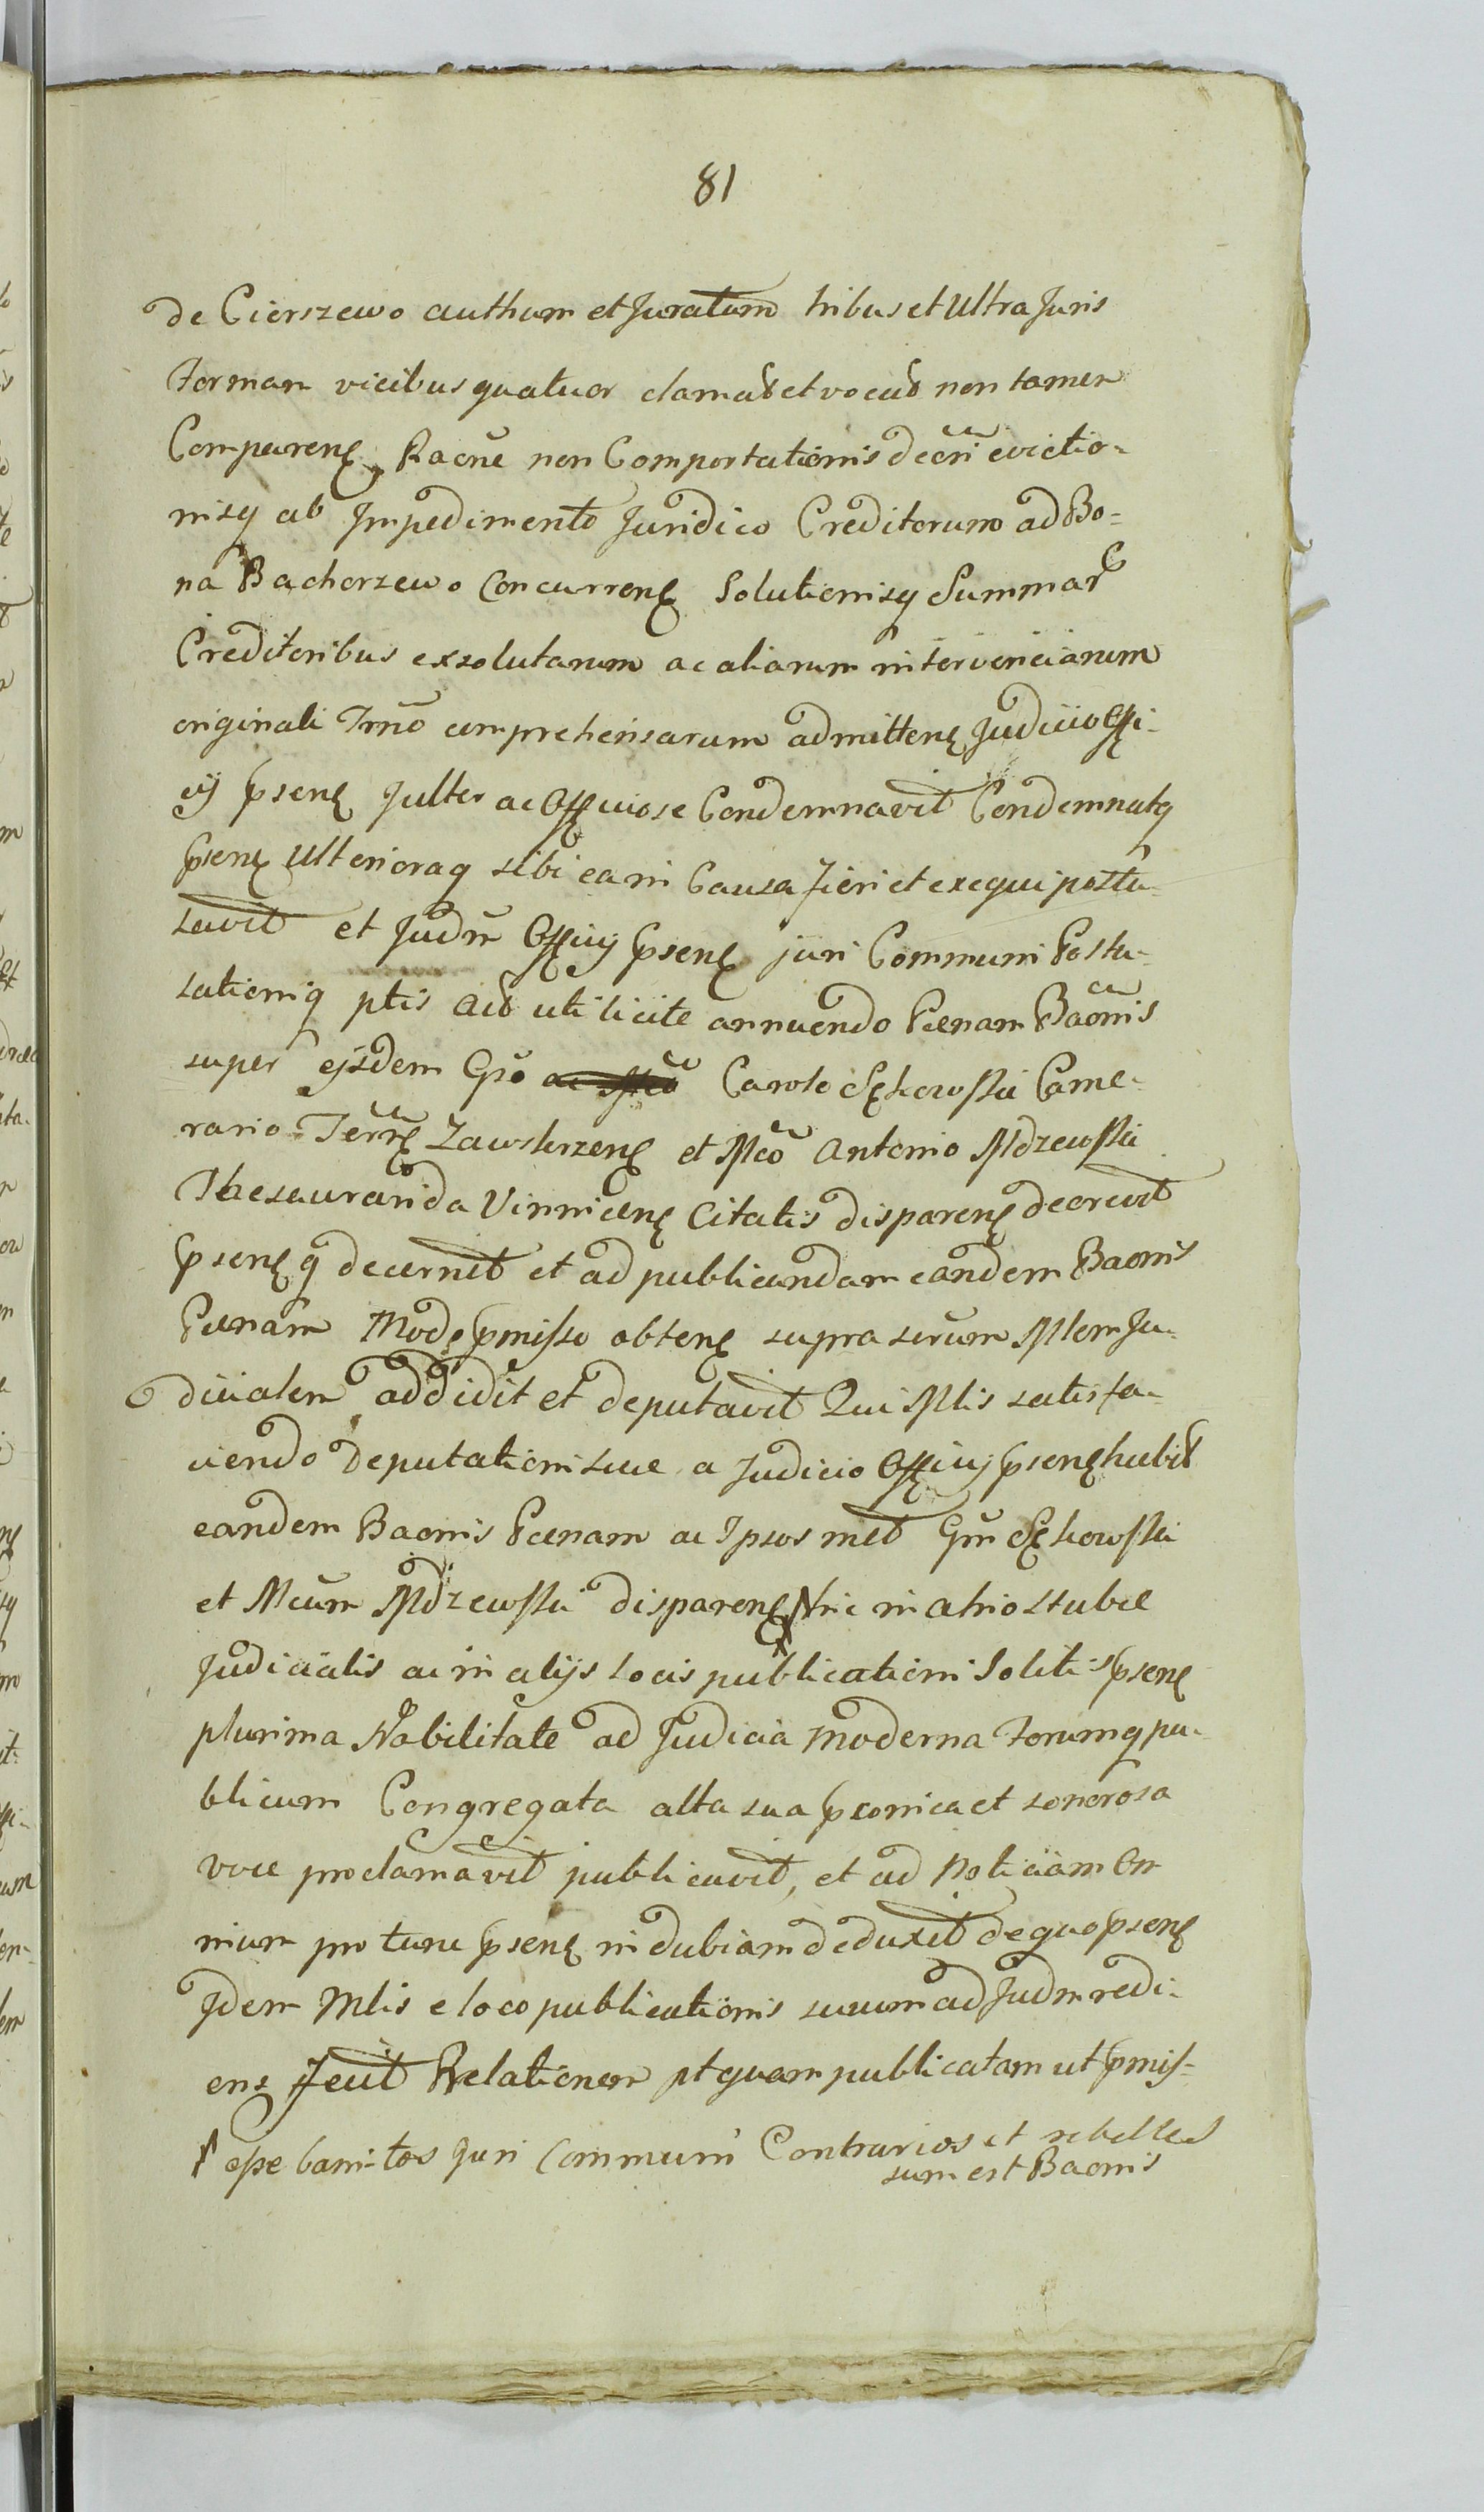 81
de Cierszewo authum et Juratum tribus et Ultra Juris
Formam vicibus quatuor clamat et vocat non tamen
Comparen Raōne non Comportationis decrī evictio-
nisq ab Impedimento Juridico Creditorum ad Bo-
na Bachorzewo Concurren Solutionisq Summar
Creditoribus exsolutarum ac aliarum intervenciarum
originali Trnō comprehensarum admitten Judicio Offi-
cij psen Julter ac Officiose Condemnavit Condemnatq
psen Ulterioraq sibi ea in Causa fieri et exequi postu-
lavit et Judm Officij psen juri Communi Postu-
lationiq ptis Act uti licite annuendo Pœnam Baōnis
super ejsdem Gso Carolo Sękowski Came-
rario Terrē Zawskrzen et Mco Antonio Mdzewski
Thesaurarida Vinnicen Citatis disparen decrevit
psenq decernit et ad publicandam eandem Baonis
Pœnam Modo pmisso obten supra scrum Mlem Ju-
dicialem addidit et deputavit Qui Mlis satisfa-
ciendo Deputationi suæ a Judicio Officij psen habit
eandem Baonis Pœnam ac Ipsos met Gm Sękowski
et Mcum Mdzewski disparen hic in atrio stubæ
Judicialis ac in alijs locis publicationi Solitis psen
plurima Nobilitate ad Judicia moderna Forumq pu-
blicum Congregata alta sua pconica et sonorosa
voce proclamavit publicavit, et ad Noticiam Om
nium pro tunc psen indubiam deduxit de quo psen
Idem Mlis e loco publicationis suum ad Judm redi-
ens fecit Relationem ptquam publicatam ut pmis-
esse banitos Juri Communi Contrarios et rebelles
sum est Baonis